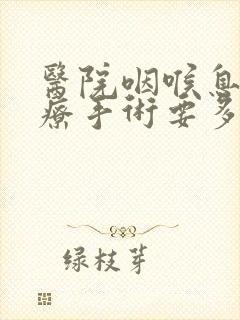 醫院咽喉息
療手術要多
绿枝芽